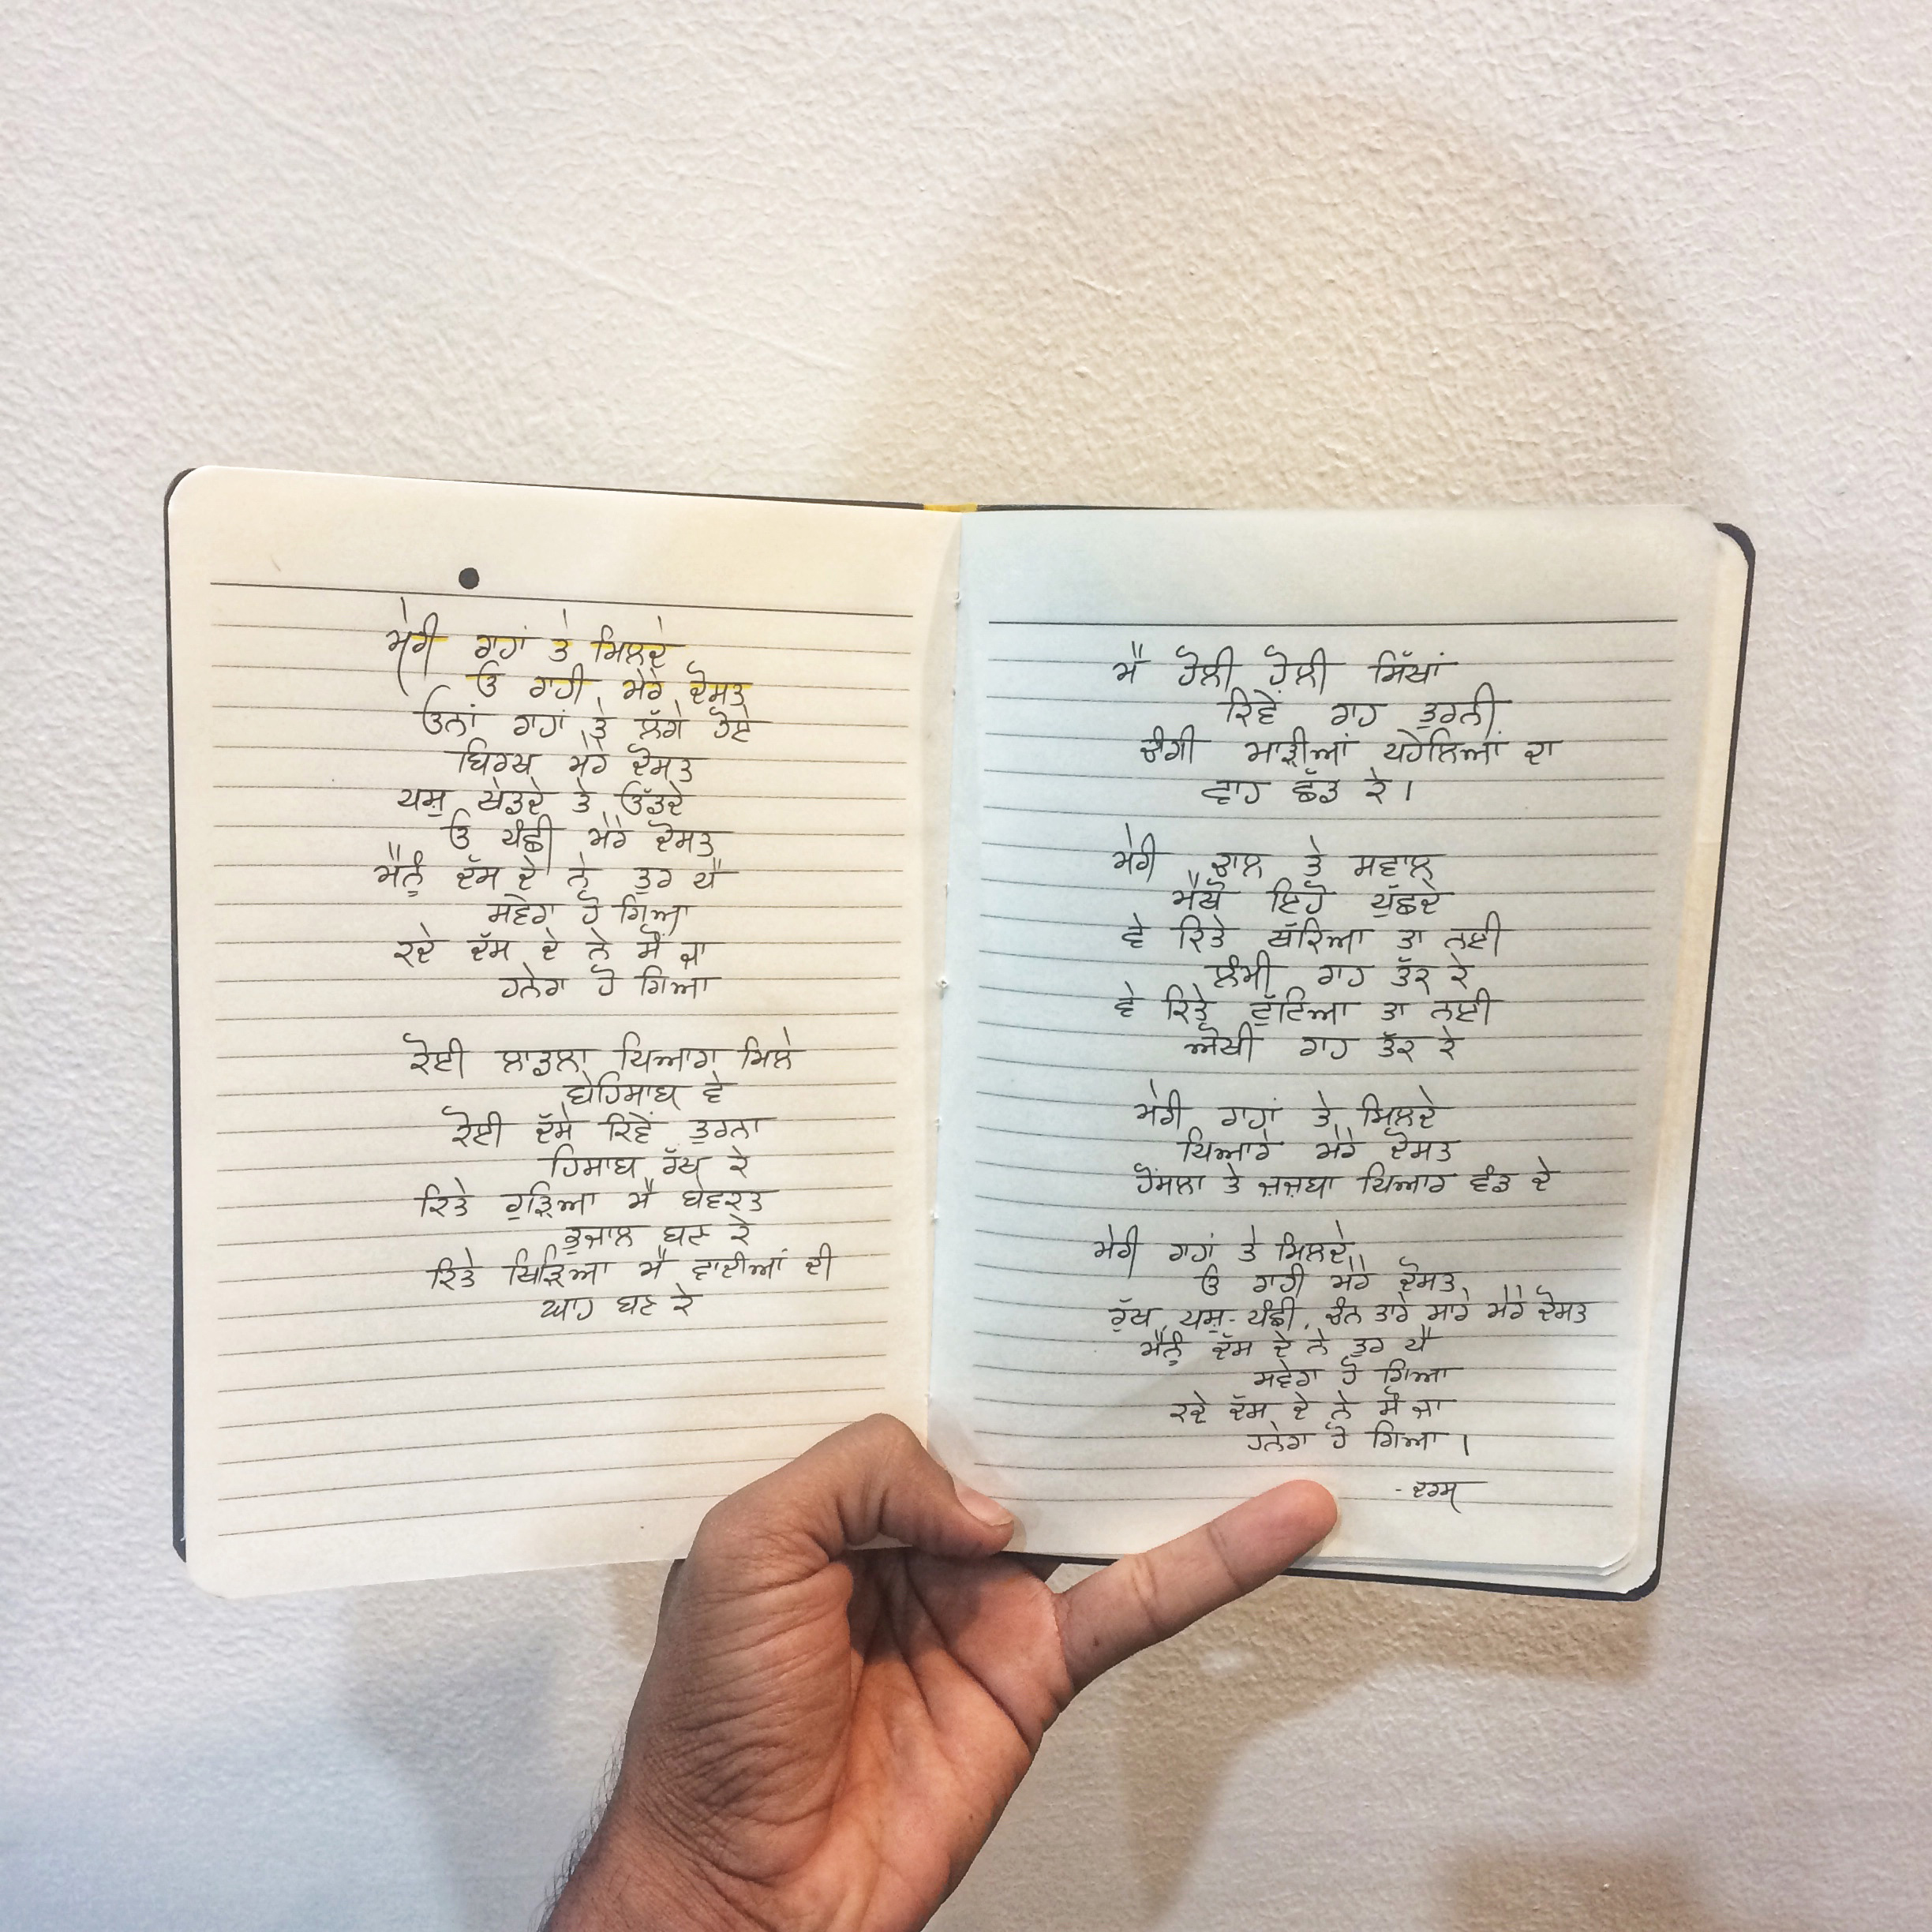 ਮੇਰੀ ਰਾਹਾਂ ਤੇ ਮਿਲਦੇ
ਓ ਰਾਹੀ ਮੇਰੇ ਦੋਸਤ
ਓਨਾਂ ਰਾਹਾਂ ਤੇ ਲੱਗੇ ਹੋਏ
ਬਿਰਖ ਮੇਰੇ ਦੋਸਤ
ਪਸ਼ੂ ਖੇਡਦੇ ਤੇ ਉੱਡਦੇ
ਓ ਪੰਛੀ ਮੇਰੇ ਦੋਸਤ
ਮੈਨੂੰ ਦੱਸ ਦੇ ਨੇ ਤੁਰ ਪੈ
ਸਵੇਰਾ ਹੋ ਗਿਆ
ਕਦੇ ਦੱਸ ਦੇ ਨੇ ਸੌਂ ਜਾ
ਹਨੇਰਾ ਹੋ ਗਿਆ
ਕੋਈ ਲਾਡਲਾ ਪਿਆਰਾ ਮਿਲੇ
ਬੇਹਿਸਾਬ ਵੇ
ਕੋਈ ਦੱਸੇ ਕਿਵੇਂ ਤੁਰਨਾ
ਹਿਸਾਬ ਰੱਖ ਕੇ
ਕਿਤੇ ਰੁੜਿਆ ਮੈ ਬੇਵਕਤ
ਭੁਜਾਲ ਬਣ ਕੇ
ਕਿਤੇ ਖਿੜਿਆ ਮੈ ਵਾਦੀਆਂ ਦੀ
ਘਾਹ ਬਣ ਕੇ
ਮੈ ਹੋਲੀ ਹੋਲੀ ਸਿੱਖਾਂ
ਕਿਵੇਂ ਰਾਹ ਤੁਰਨੀ
ਚੰਗੀ ਮਾੜੀਆਂ ਪਹੇਲਿਆਂ ਦਾ
ਵਾਹ ਛੱਡ ਕੇ।
ਮੇਰੀ ਚਾਲ ਤੇ ਸਵਾਲ
ਮੈਥੋਂ ਇਹੋ ਪੁੱਛਦੇ
ਵੇ ਕਿਤੇ ਥੱਕਿਆ ਤਾ ਨਈ
ਲੰਮੀ ਰਾਹ ਤੱਕ ਕੇ
ਵੇ ਕਿਤੇ ਟੁੱਟਿਆ ਤਾ ਨਈ
ਔਖੀ ਰਾਹ ਤੱਕ ਕੇ
ਮੇਰੀ ਰਾਹਾਂ ਤੇ ਮਿਲਦੇ
ਪਿਆਰੇ ਮੇਰੇ ਦੋਸਤ
ਹੌਂਸਲਾ ਤੇ ਜਜ਼ਬਾ ਪਿਆਰ ਵੰਡ ਦੇ
ਮੇਰੀ ਰਾਹਾਂ ਤੇ ਮਿਲਦੇ
ਓ ਰਾਹੀ ਮੇਰੇ ਦੋਸਤ
ਰੁੱਖ, ਪਸ਼ੂ-ਪੰਛੀ, ਚੰਨ ਤਾਰੇ ਸਾਰੇ ਮੇਰੇ ਦੋਸਤ
ਮੈਨੂੰ ਦੱਸ ਦੇ ਨੇ ਤੁਰ ਪੈ
ਸਵੇਰਾ ਹੋ ਗਿਆ
ਕਦੇ ਦੱਸ ਦੇ ਨੇ ਸੌਂ ਜਾ
ਹਨੇਰਾ ਹੋ ਗਿਆ।
- ਦਰਸ਼